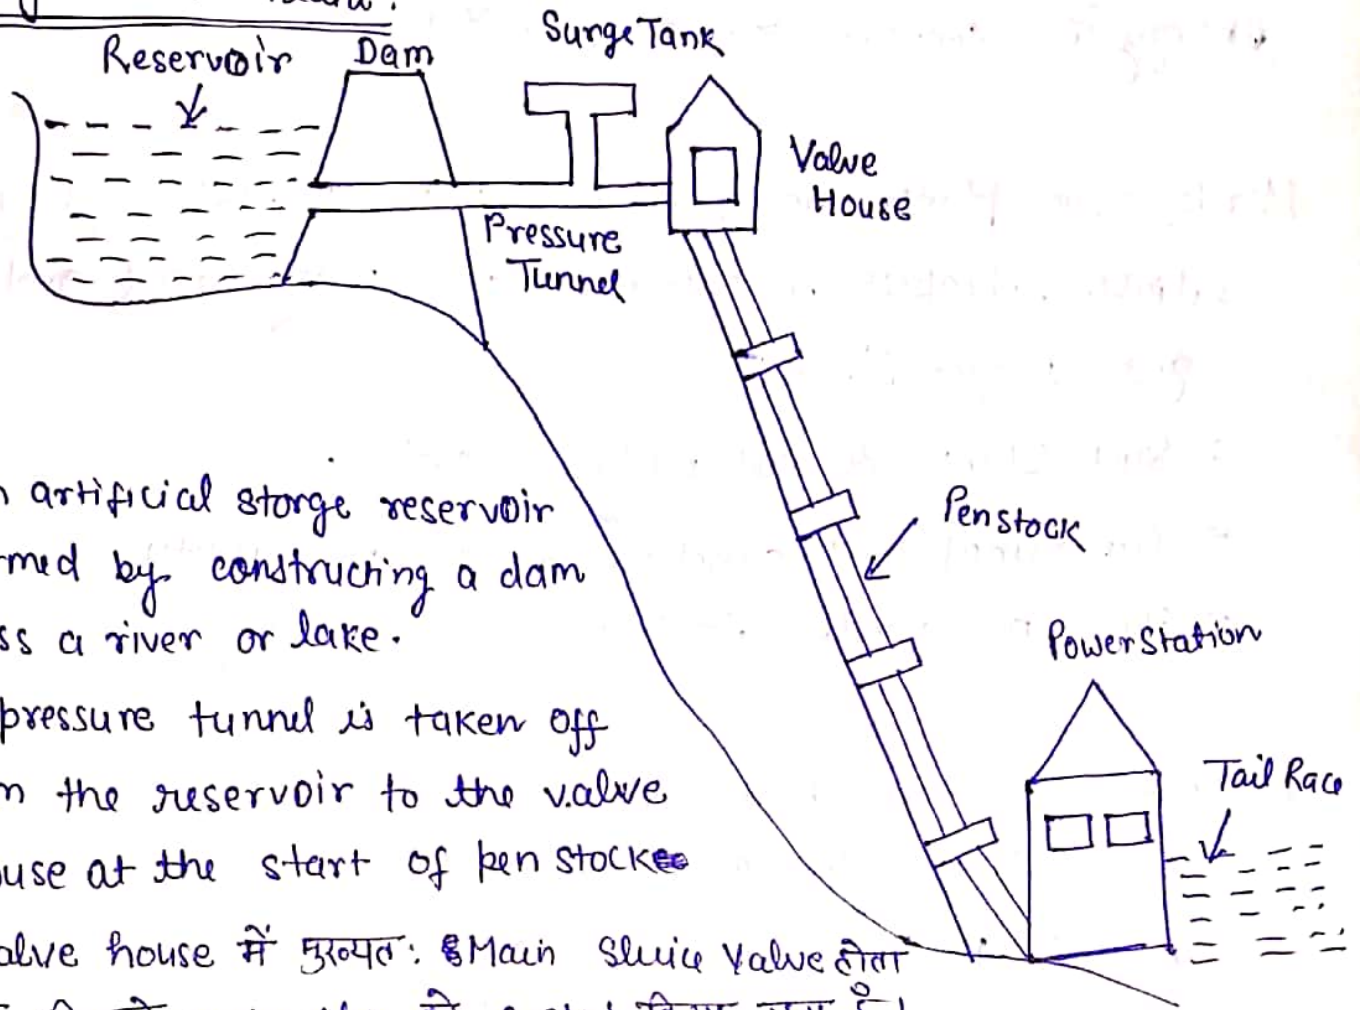 Reservoir
Dam
Surge Tank
Valve
House
Pressure
Tunnel
Penstock
Power Station
Tail Race
artificial storge reservoir
med by constructing a dam
ss a river or lake.
pressure tunnel is taken off
the reservoir to the valve
use at the start of pen stock
alve house में मुख्यत: Main Sluice Valve होता